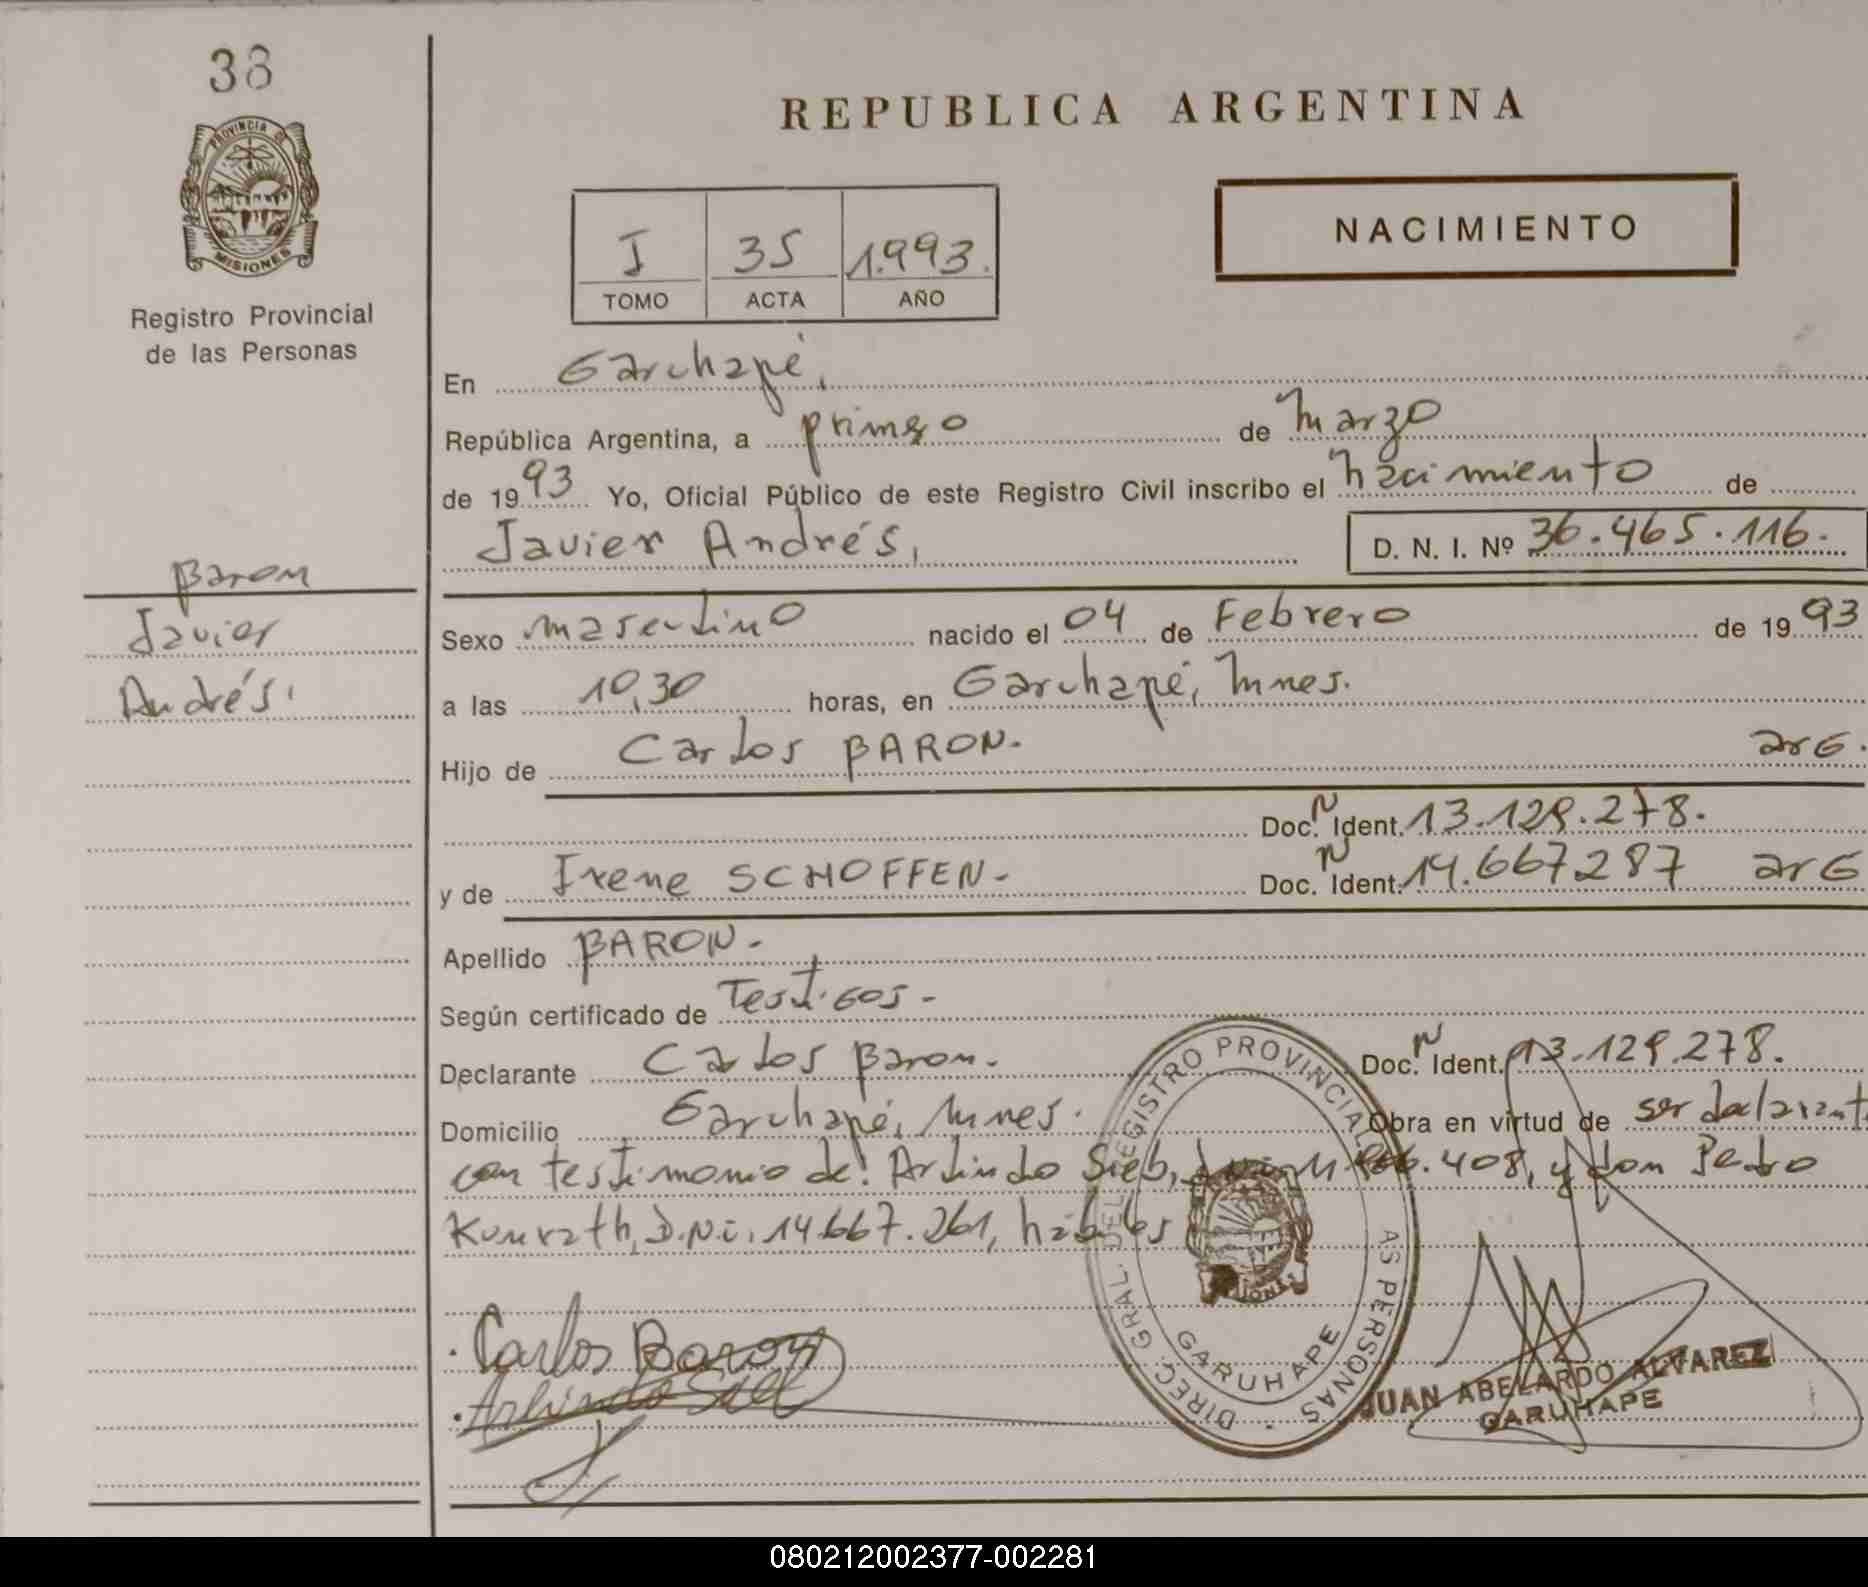 38
PROVINCIA DE
MISIONES
Registro Provincial
de las Personas
Baron
Javier
Andrés.
REPUBLICA ARGENTINA
I 35 1.993.
TOMO ACTA AÑO
NACIMIENTO
En Garuhapé,
República Argentina, a primero de marzo
de 1993 Yo, Oficial Público de este Registro Civil inscribo el nacimiento de
Javier Andrés, D. N. I. Nº 36.465.116.
Sexo masculino nacido el 04 de Febrero de 1993
a las 10,30 horas, en Garuhapé, Mnes.
Hijo de Carlos BARON. arG.
Doc. N Ident. 13.129.278.
y de Irene SCHOFFEN. Doc. N Ident. 14.667.287 arG
Apellido BARON.-
Según certificado de Testigos-
Declarante Carlos Baron. Doc. N Ident. 13.129.278.
Domicilio Garuhapé, Mnes. Obra en virtud de ser declarante
con testimonio de: Arlindo Sieb, .408, y don Pedro
Kunrath, D.N.i. 14.667.261, hábiles
Carlos Baron
Arlindo Sieb
DIREC. GRAL. DEL REGISTRO PROVINCIAL AS PERSONAS
GARUHAPE
JUAN ABELARDO ALVAREZ
GARUHAPE
080212002377-002281